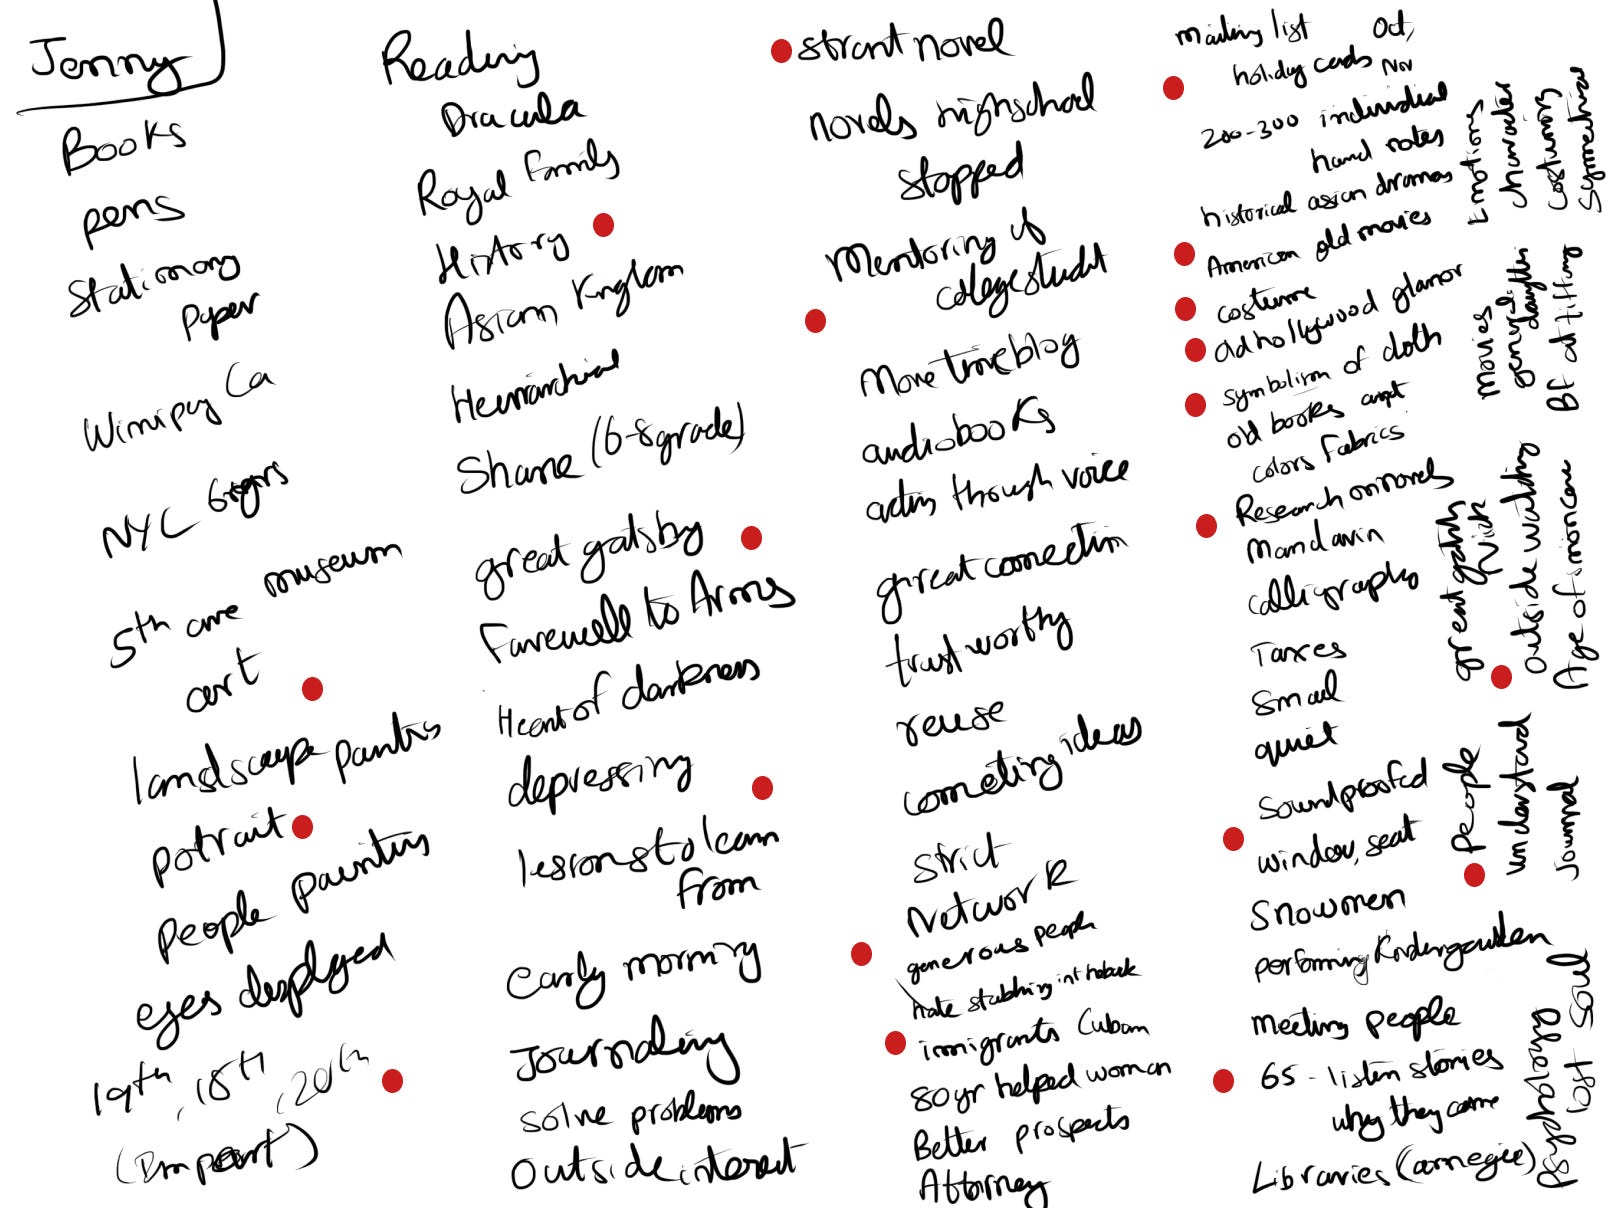 Jenny
Books
pens
Stationary
Paper
Winnipeg Ca
NYC 6yrs
5th ave museum
art
landscape
potrait
People
eyes displyed
19th, 18th, 20th
Reading
Dracula
Royal Family
History
Asian Kingdom
Shane (6-8grade)
great gatsby
Farewell to Arms
Heart of darkness
depressing
lessons to learn
from
Early morning
Journaling
solve problems
Outside interest
novel
novels highschool
stopped
Mentoring of
college studnt
More time blog
audiobooks
acting through voice
great connection
trustworthy
reuse
ideas
strict
Network
generous people
hate stabbing in the back
immigrants Cuban
80yr helped woman
Better prospects
Attorney
mailing list Oct,
holiday cards Nov
200-300 individual
hand notes
historical asian dramas
American old movies
costume
old hollywood glamor
symbolism of cloth
old books
colors Fabrics
Research on novels
Mandarin
calligraphy
Taxes
Small
quiet
Soundproofed
window, seat
Snowmen
performing Kindergarden
Meeting people
65 - listen stories
why they came
Libraries (carnegie)
Emotions
character
costumes
Symmetrical
movies
general's
daughter
Bf at tiffany
great gatsby
Nick
Outside watching
Age of innocence
People
understand
Journal
Psychology
lost soul